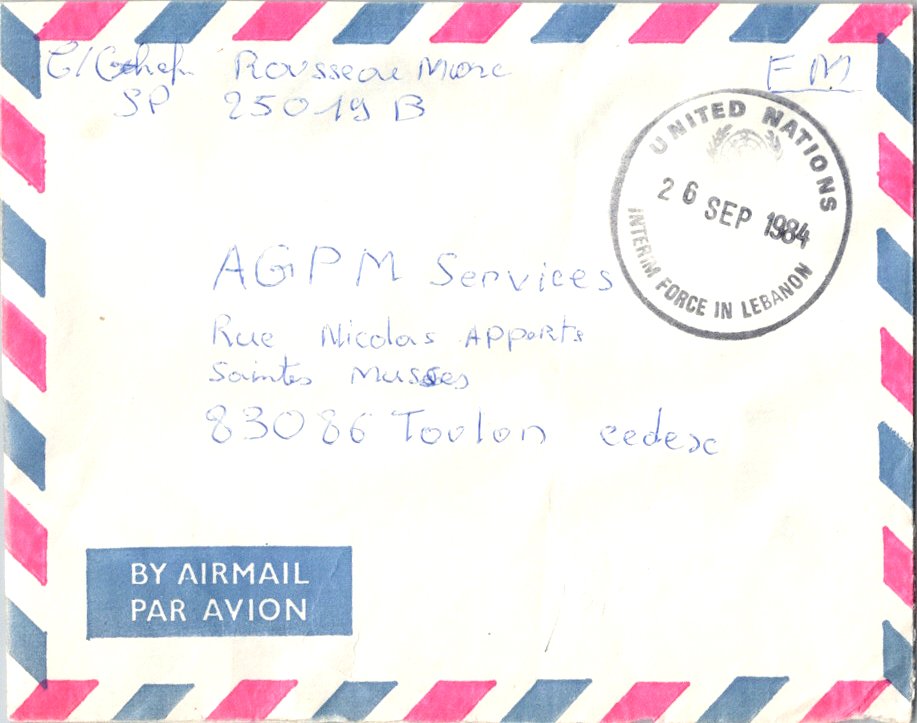 C/Chef Rousseau Marc
SP 25019 B
FM
UNITED NATIONS
26 SEP 1984
INTERIM FORCE IN LEBANON
AGPM Services
Rue Nicolas APPORTS
Saintes Musses
83086 Toulon cedex
BY AIRMAIL
PAR AVION